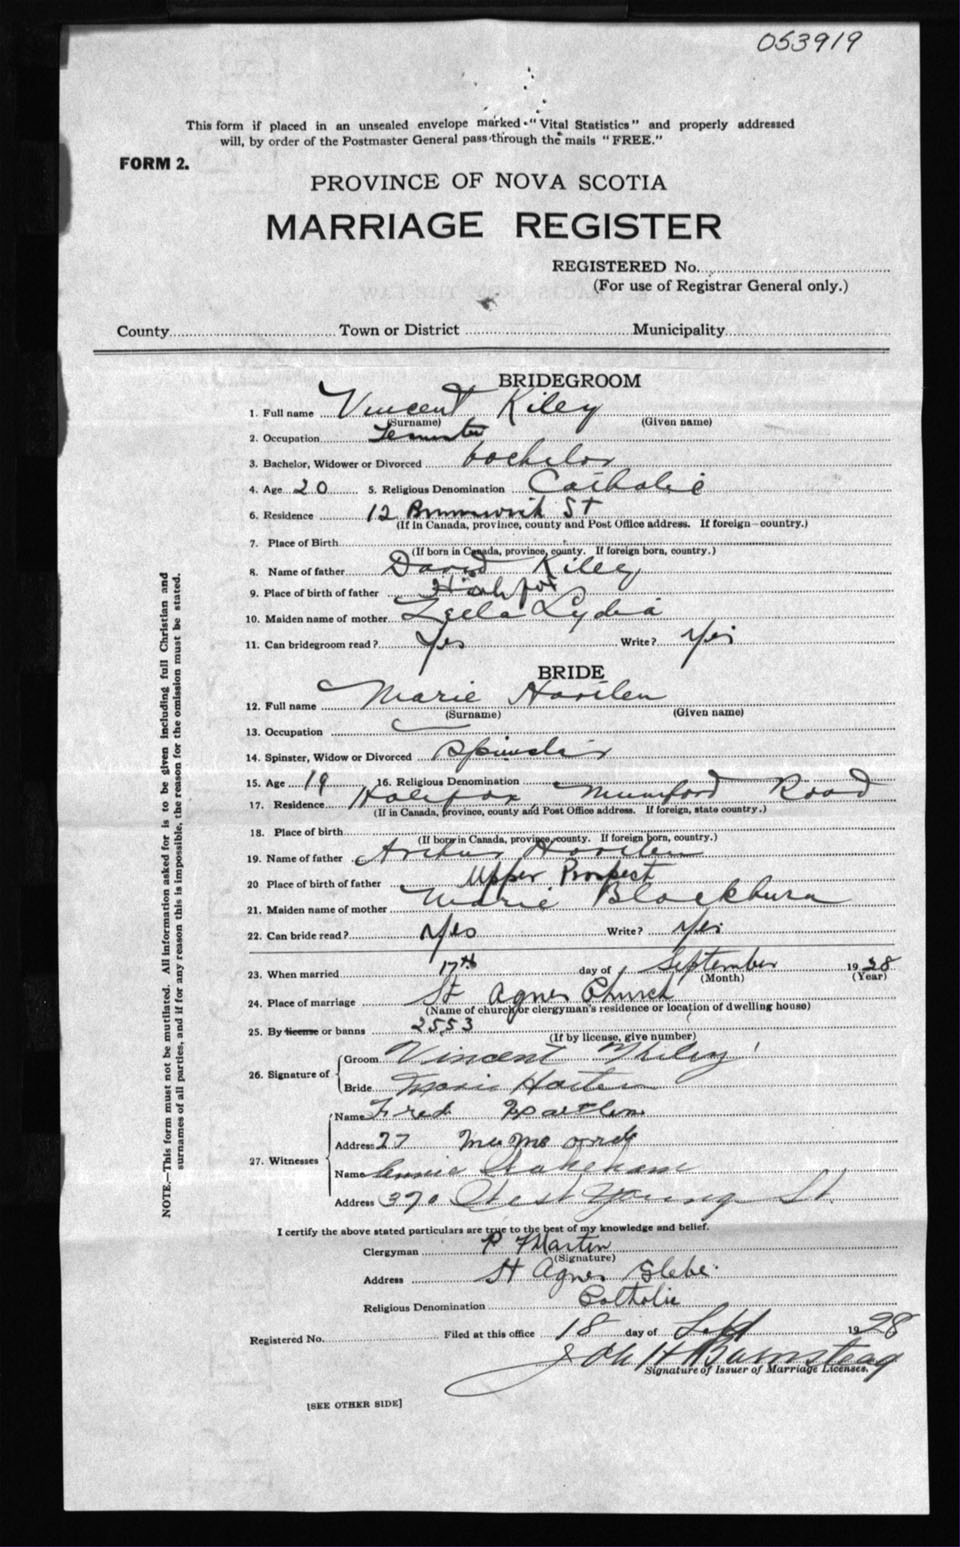 053919
This form if placed in an unsealed envelope marked "Vital Statistics" and properly addressed
will, by order of the Postmaster General pass through the mails "FREE."
FORM 2.
PROVINCE OF NOVA SCOTIA
MARRIAGE REGISTER
REGISTERED No.
(For use of Registrar General only.)
County Town or District Municipality
BRIDEGROOM
1. Full name Vincent Kiley
(Surname) (Given name)
2. Occupation Teamster
3. Bachelor, Widower or Divorced bachelor
4. Age 20 5. Religious Denomination Catholic
6. Residence 12 Brunswick St
(If in Canada, province, county and Post Office address. If foreign—country.)
7. Place of Birth
(If born in Canada, province, county. If foreign born, country.)
8. Name of father David Kiley
9. Place of birth of father Halifax
10. Maiden name of mother Lydia
11. Can bridegroom read? Yes Write? Yes
BRIDE
12. Full name Marie
(Surname) (Given name)
13. Occupation
14. Spinster, Widow or Divorced Spinster
15. Age 19 16. Religious Denomination
17. Residence Halifax Mumford Road
(If in Canada, province, county and Post Office address. If foreign, state country.)
18. Place of birth
(If born in Canada, province, county. If foreign born, country.)
19. Name of father
20 Place of birth of father Upper Prospect
21. Maiden name of mother Marie Blackburn
22. Can bride read? Yes Write? Yes
23. When married 17th day of September 1928
(Month) (Year)
24. Place of marriage St Agnes Church
(Name of church or clergyman's residence or location of dwelling house)
25. By license or banns 2553
(If by license, give number)
26. Signature of
Groom Vincent
Bride Marie
27. Witnesses
Name Fred
Address 27
Name
Address 370 West Young St.
I certify the above stated particulars are true to the best of my knowledge and belief.
Clergyman P Martin
(Signature)
Address St Agnes Glebe
Religious Denomination Catholic
Registered No. Filed at this office 18 day of Sept 1928
Signature of Issuer of Marriage Licenses.
[SEE OTHER SIDE]
NOTE.—This form must not be mutilated. All information asked for is to be given including full Christian and
surnames of all parties, and if for any reason this is impossible, the reason for the omission must be stated.